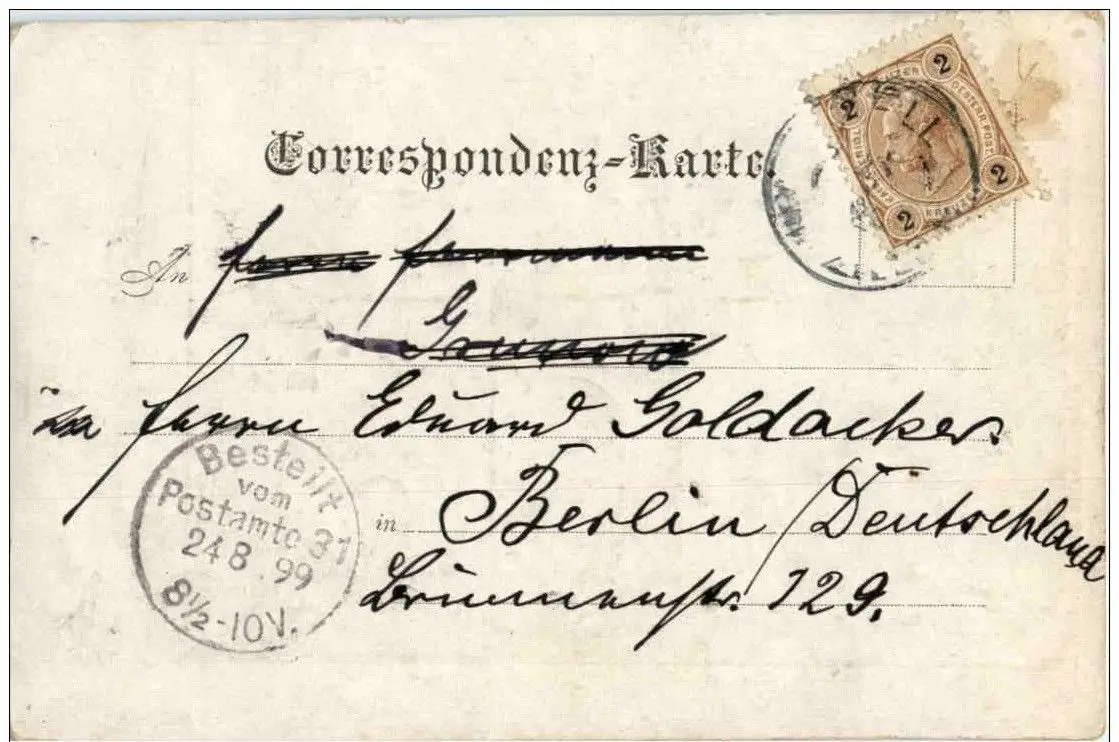 Correspondenz-Karte.
2 2 2 2
KREUZER
OESTERR. POST
ZELL
An Herrn Herrmann
an Herrn Eduard Goldacker.
in Berlin / Deutschland
Brunnenstr. 129.
Bestellt
vom
Postamte 31
24 8. 99
8½-10V.